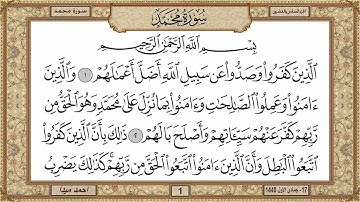 سورة محمد
الجزء السادس والعشرون
سُورَةُ مُحَمَّدٍ
بِسْمِ اللَّهِ الرَّحْمَٰنِ الرَّحِيمِ
الَّذِينَ كَفَرُوا وَصَدُّوا عَن سَبِيلِ اللَّهِ أَضَلَّ أَعْمَٰلَهُمْ ١ وَالَّذِينَ
ءَامَنُوا وَعَمِلُوا الصَّٰلِحَٰتِ وَءَامَنُوا بِمَا نُزِّلَ عَلَىٰ مُحَمَّدٍ وَهُوَ الْحَقُّ مِن
رَّبِّهِمْ كَفَّرَ عَنْهُمْ سَيِّـَٔاتِهِمْ وَأَصْلَحَ بَالَهُمْ ٢ ذَٰلِكَ بِأَنَّ الَّذِينَ كَفَرُوا
اتَّبَعُوا الْبَٰطِلَ وَأَنَّ الَّذِينَ ءَامَنُوا اتَّبَعُوا الْحَقَّ مِن رَّبِّهِمْ كَذَٰلِكَ يَضْرِبُ
17- جمادى الأول 1440
1
أحمد